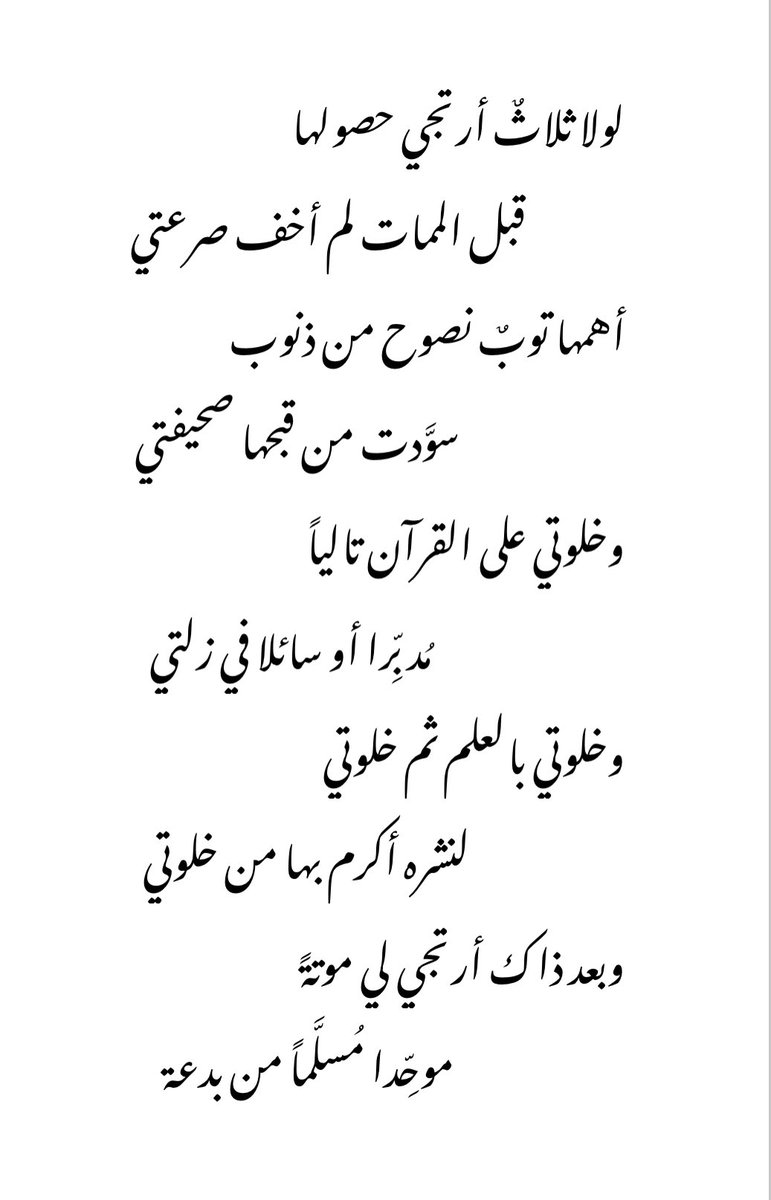 لولا ثلاثٌ أرتجي حصولها
قبل الممات لم أخف صرعتي
أهمها توبٌ نصوح من ذنوب
سوَّدت من قبحها صحيفتي
وخلوتي على القرآن تالياً
مُدبِّرا أو سائلا في زلتي
وخلوتي بالعلم ثم خلوتي
لنشره أكرم بها من خلوتي
وبعد ذاك أرتجي لي موتةً
موحِّدا مُسلَّماً من بدعة